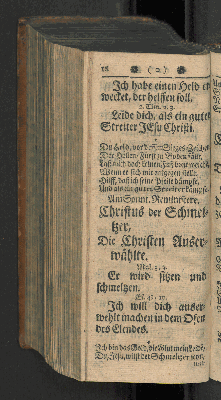 ( 2 )
Ich habe einen Held er
wecket, der helffen soll.
2. Tim. 2. 3.
Leide dich, als ein guter
Streiter JEsu Christi.
Du Held, vor dessen Sieges-Zeichen
Der Höllen-Fürst zu Boden fällt,
Laß mich doch keinen
Wenn er sich mir entgegen stellt.
Hilff, daß ich seine Pfeile dämpfe,
Und als ein guter Streiter kämpfe.
Am Sonnt. Reminiscere.
Christus der Schmel-
tzer,
Die Christen Auser-
wählte.
Mal. 3. 3.
Er wird sitzen und
schmeltzen.
Es. 48. 10.
Ich will dich auser-
wehlt machen in dem Ofen
des Elendes.
Ich bin das Gold,
Du, JEsu, wilst der Schmeltzer seyn,